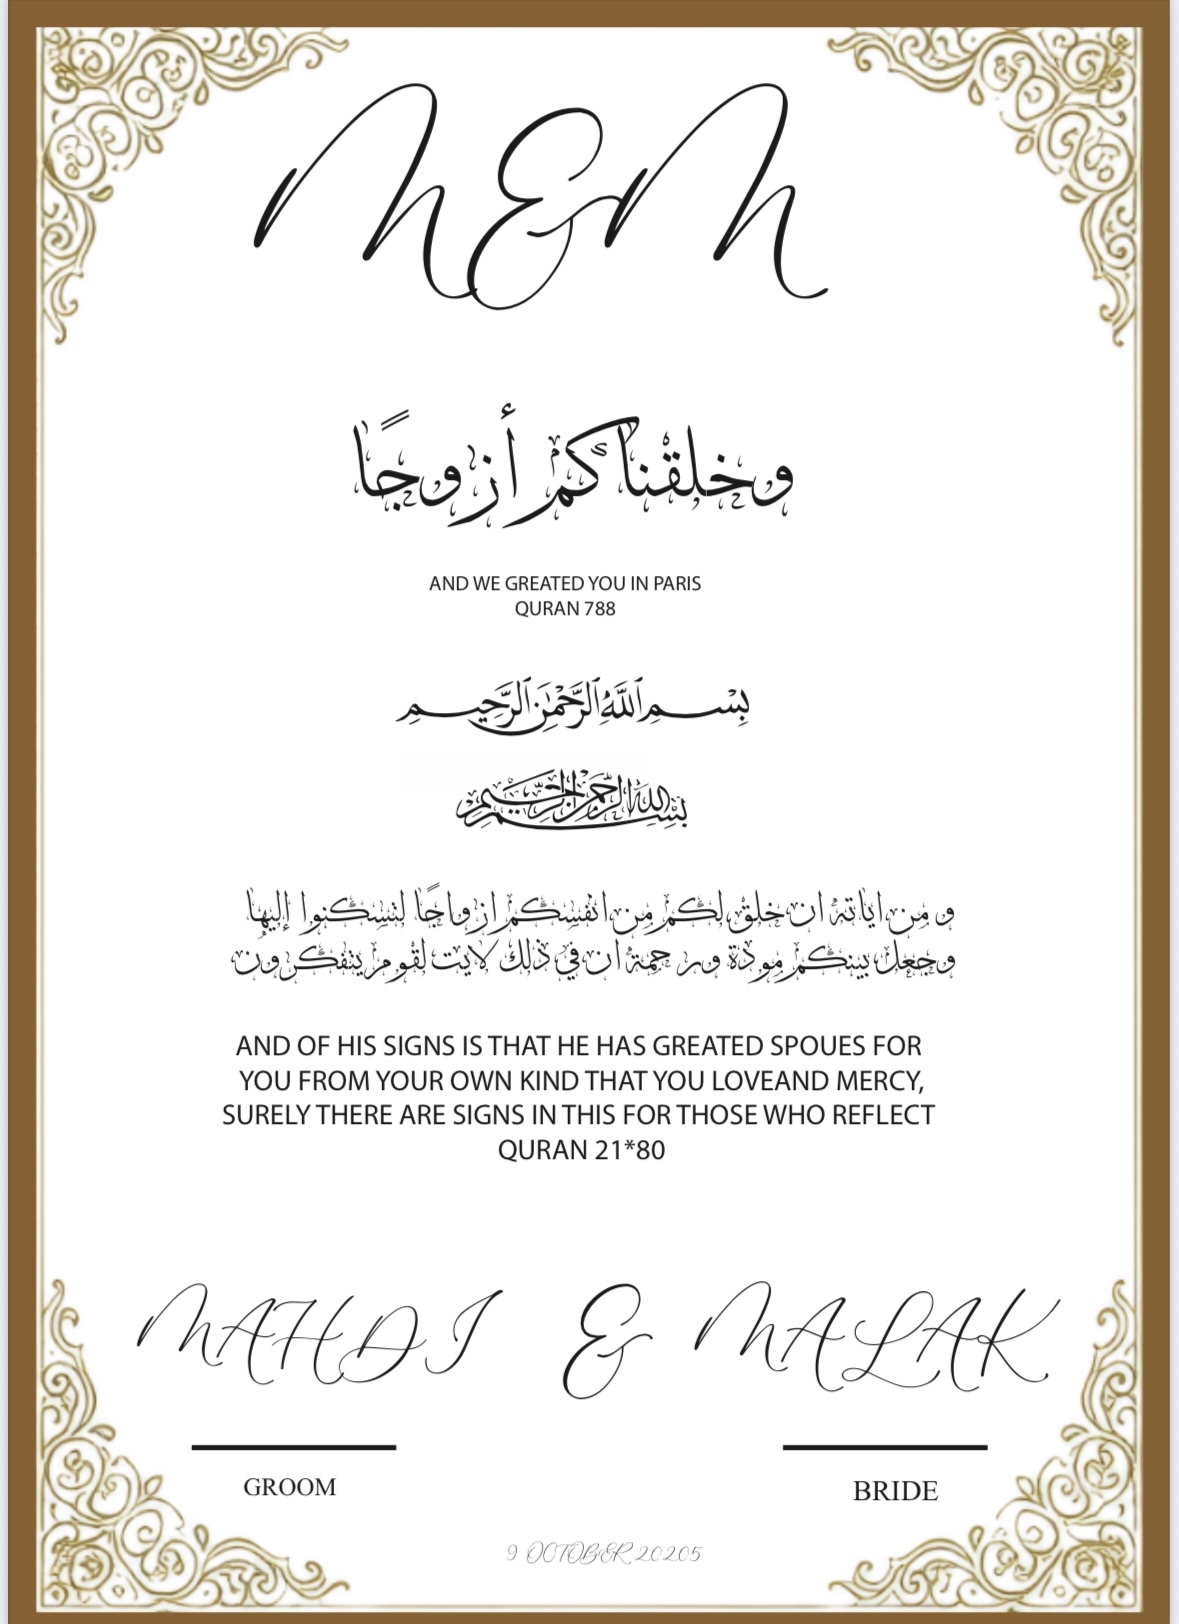 M&M
وخلقناكم أزوجًا
AND WE GREATED YOU IN PARIS
QURAN 788
بِسْمِ ٱللَّهِ ٱلرَّحْمَٰنِ ٱلرَّحِيمِ
بسم الله الرحمن الرحيم
و مِن اياته ان خلق لكم مِن انفسكم ازواجًا لتسكنوا إليها
وجعل بينكم مودة ورحمة ان في ذلك لايت لقوم يتفكرون
AND OF HIS SIGNS IS THAT HE HAS GREATED SPOUES FOR
YOU FROM YOUR OWN KIND THAT YOU LOVEAND MERCY,
SURELY THERE ARE SIGNS IN THIS FOR THOSE WHO REFLECT
QURAN 21*80
MAHDI & MALAK
GROOM BRIDE
9 OCTOBER 20205